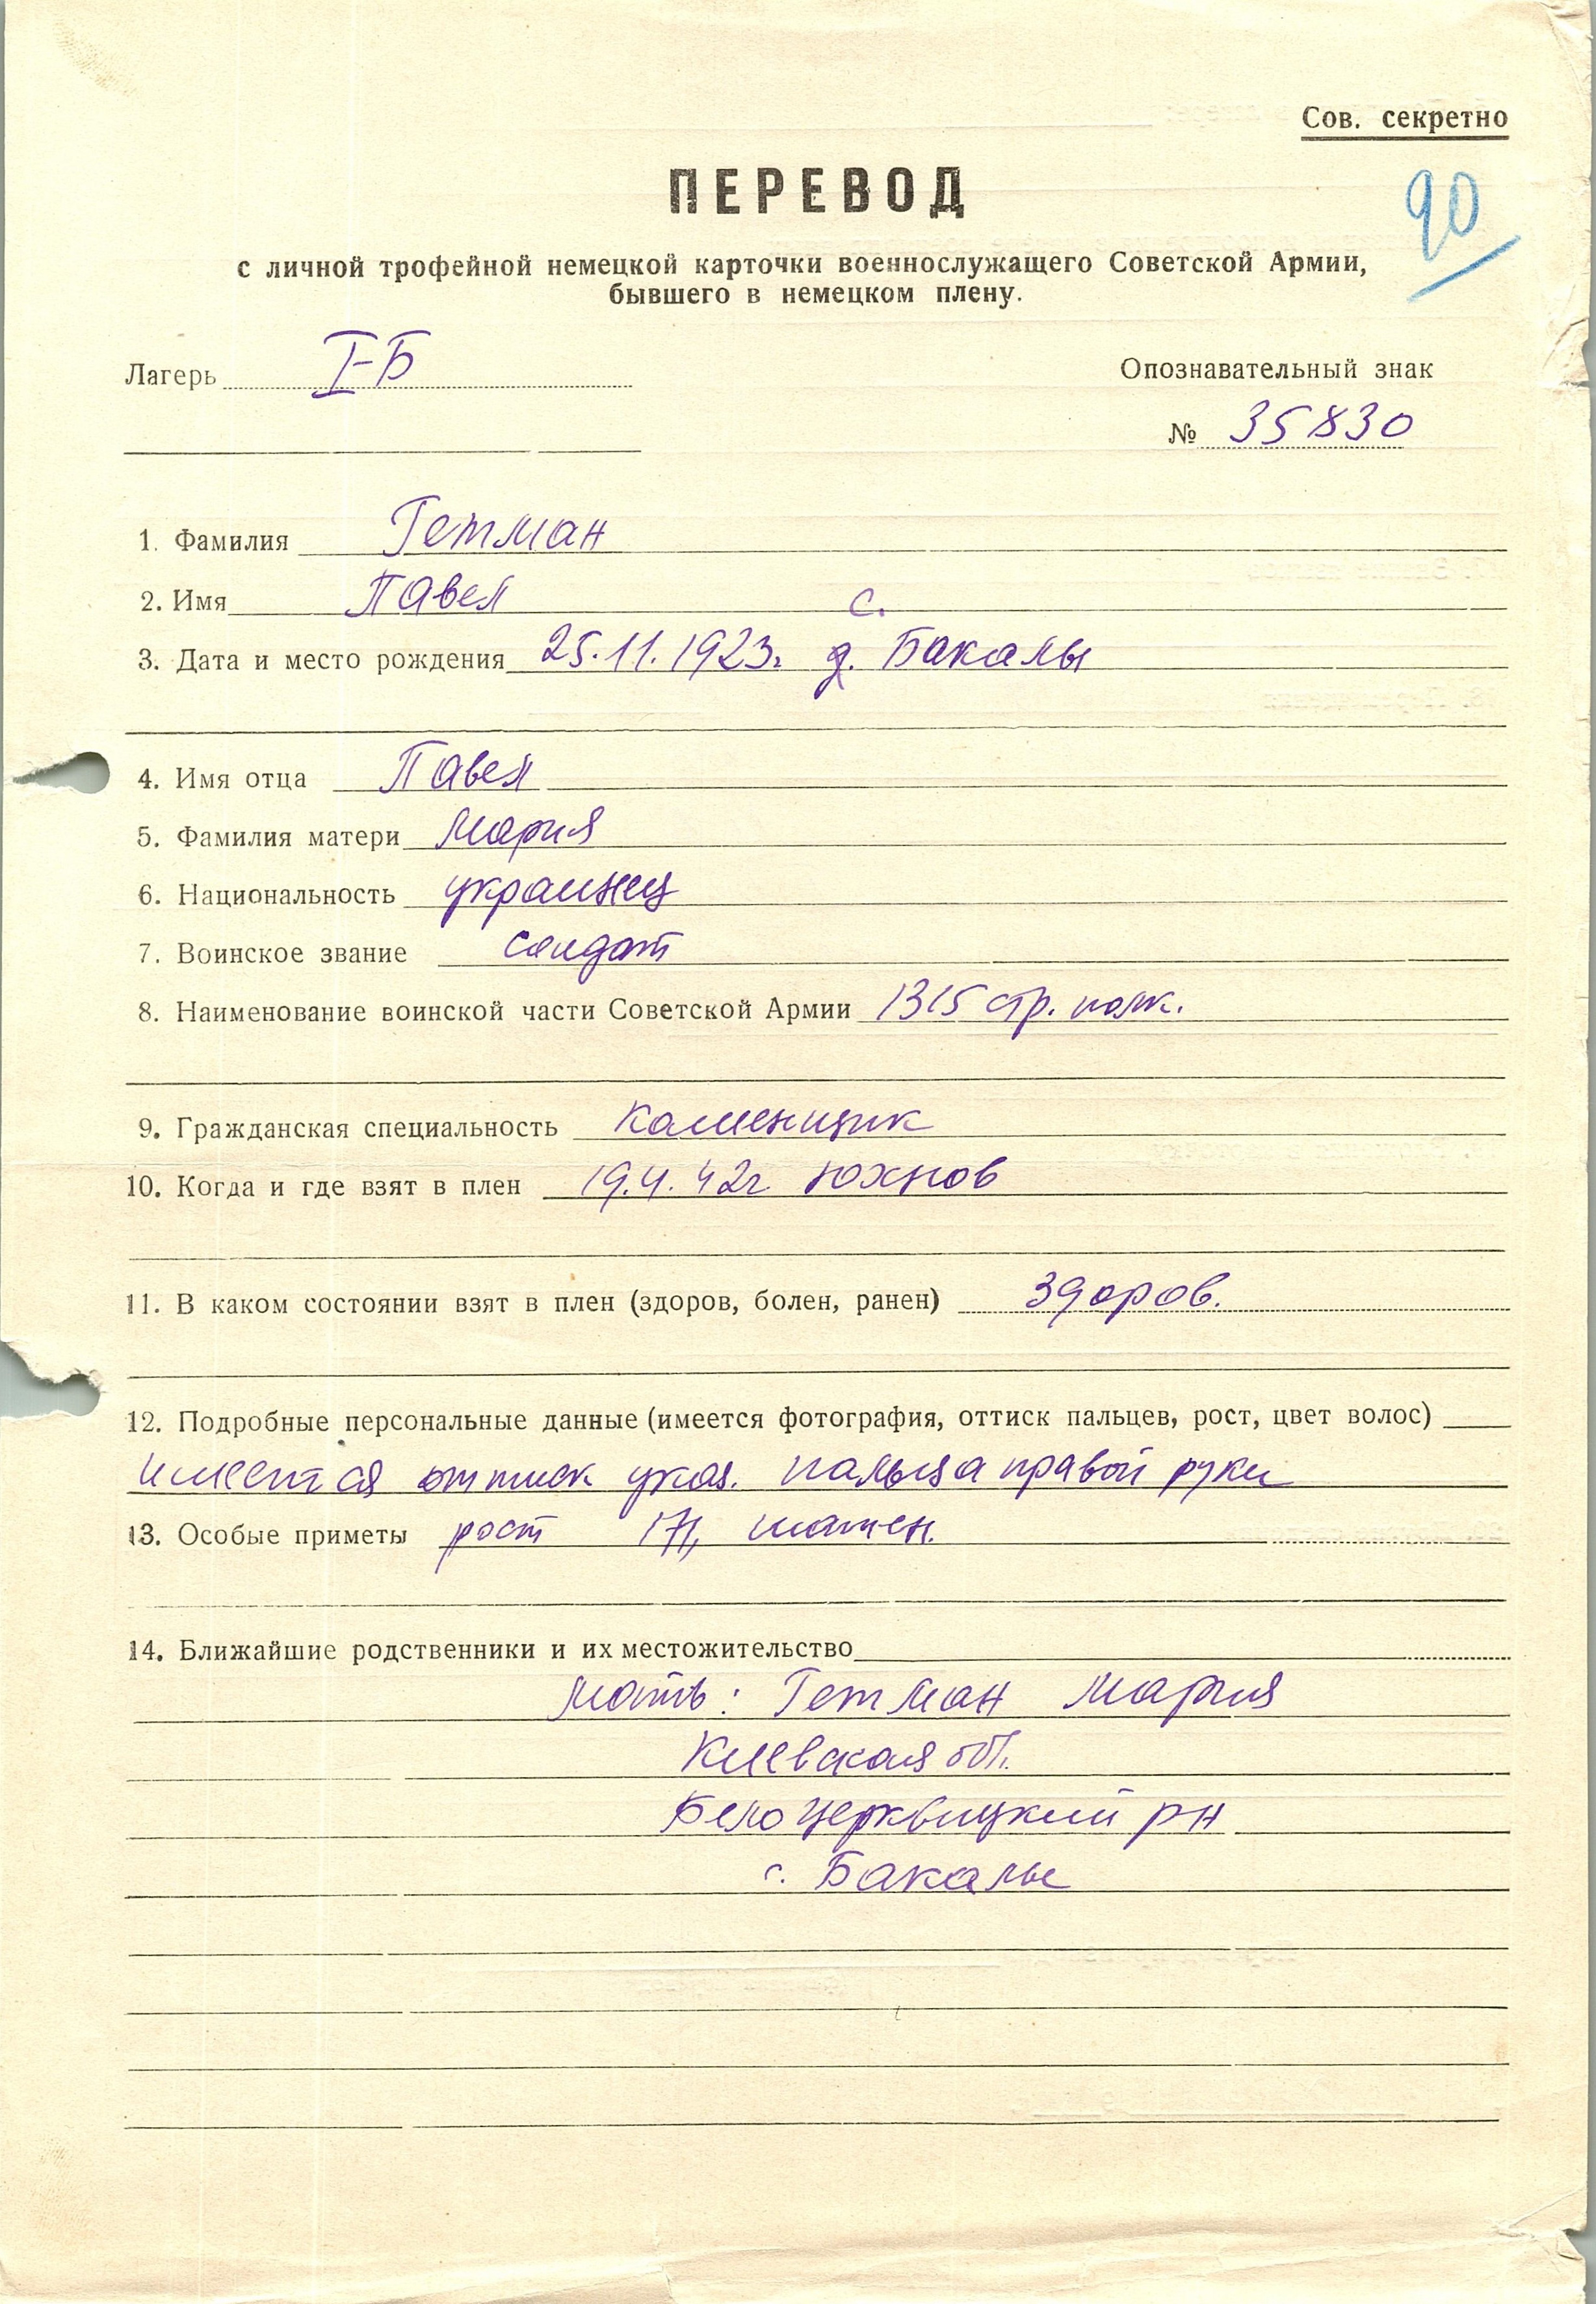 Сов. секретно
ПЕРЕВОД
90
с личной трофейной немецкой карточки военнослужащего Советской Армии,
бывшего в немецком плену.
Лагерь I-Б
Опознавательный знак
№ 35830
1. Фамилия Гетман
2. Имя Павел
с.
3. Дата и место рождения 25.11.1923г. д. Бакалы
4. Имя отца Павел
5. Фамилия матери Мария
6. Национальность украинец
7. Воинское звание солдат
8. Наименование воинской части Советской Армии 1315 стр. полк.
9. Гражданская специальность каменщик
10. Когда и где взят в плен 19.4.42г. Юхнов
11. В каком состоянии взят в плен (здоров, болен, ранен) здоров.
12. Подробные персональные данные (имеется фотография, оттиск пальцев, рост, цвет волос)
имеется оттиск указ. пальца правой руки
13. Особые приметы рост 171, шатен.
14. Ближайшие родственники и их местожительство
мать: Гетман Мария
Киевская обл.
Белоцерквицкий рн
с. Бакалы